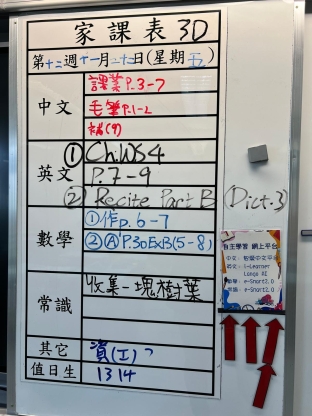 家課表 3D
第十二週 十一月二十日(星期五)
中文
課業P.3-7
毛筆P.1-2
補(9)
英文
① Ch.WS4
P.7-9
② Recite Part B (Dict.3)
數學
①作p.6-7
②Ⓐ P.30ExB(5-8)
常識
收集一塊樹葉
其它
資(工)
值日生
13 14
自主學習 網上平台
i-Learner
Longo AI
e-Smart2.0
e-Smart2.0